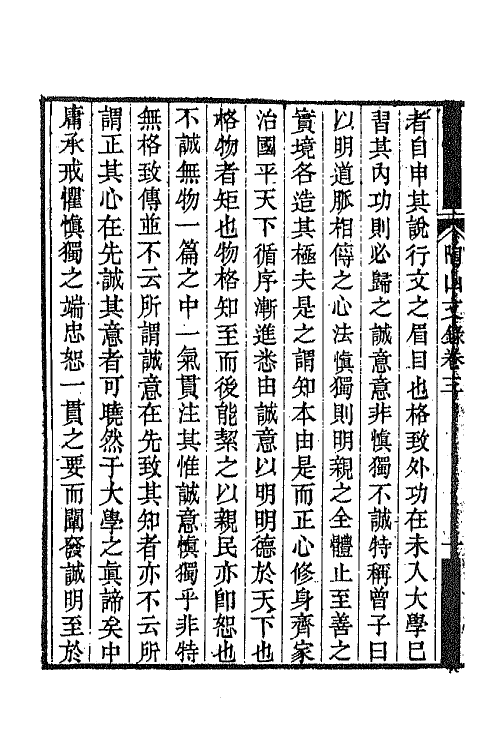 陶山文錄卷三
者自申其說行文之眉目也格致外功在未入大學巳
習其內功則必歸之誠意意非慎獨不誠特稱曾子曰
以明道脈相傳之心法慎獨則明親之全體止至善之
實境各造其極夫是之謂知本由是而正心修身齊家
治國平天下循序漸進悉由誠意以明明德於天下也
格物者矩也物格知至而後能絜之以親民亦卽恕也
不誠無物一篇之中一氣貫注其惟誠意慎獨乎非特
無格致傳並不云所謂誠意在先致其知者亦不云所
謂正其心在先誠其意者可曉然于大學之眞諦矣中
庸承戒懼慎獨之端忠恕一貫之要而闡發誠明至於